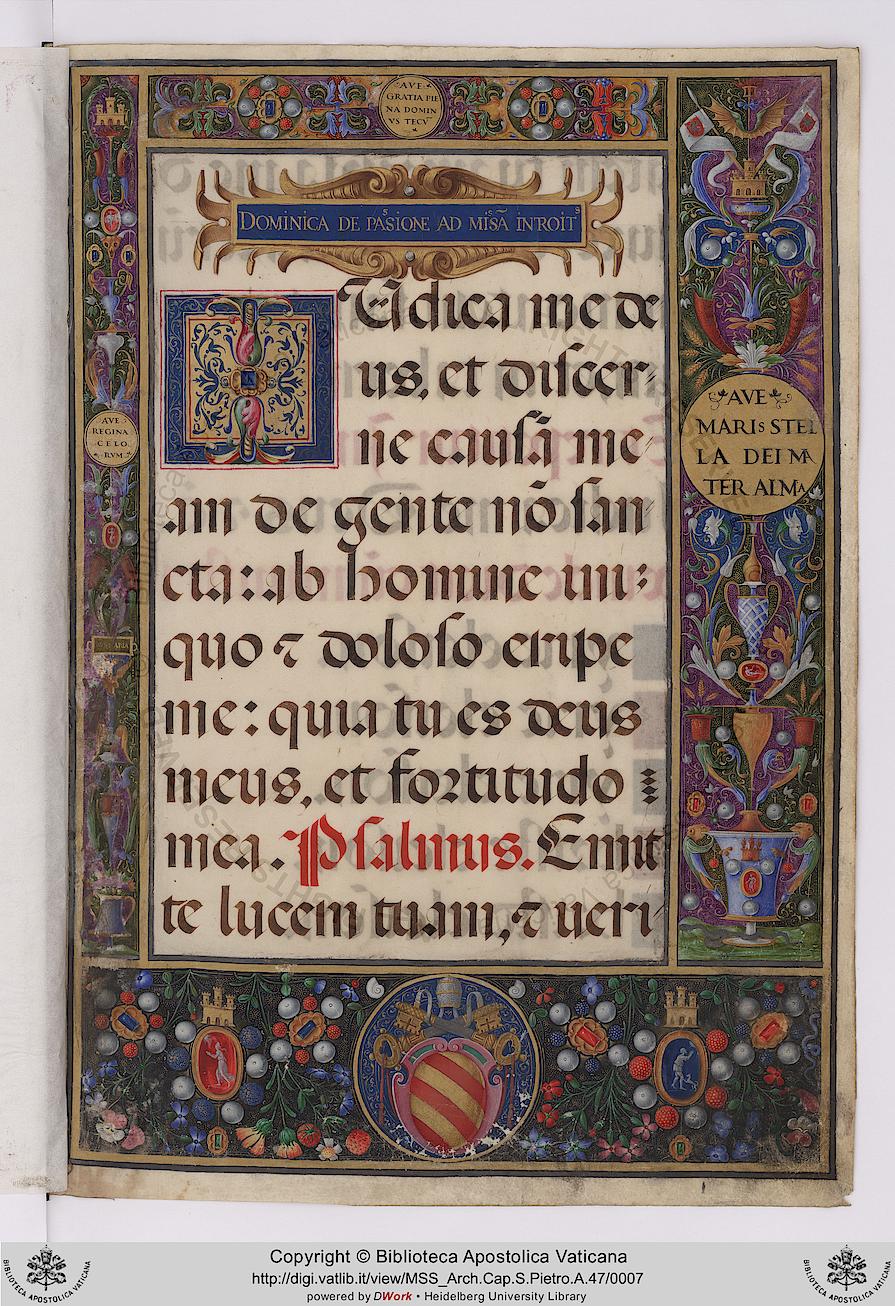 AVE
GRATIA PLE
NA DOMIN
VS TECV̄
DOMINICA DE PASSIONE AD MISSĀ INTROITS
Iudica me de
us, et discer⸗
ne causā me⸗
am de gente nō san⸗
cta: ab homine ini⸗
quo ⁊ doloso eripe
me: quia tu es deus
meus, et fortitudo
mea. Psalmus. Emit
te lucem tuam, ⁊ veri⸗
AVE
REGINA
CELO
RVM
AVE
MARIS STEL
LA DEI MA
TER ALMA
Copyright © Biblioteca Apostolica Vaticana
http://digi.vatlib.it/view/MSS_Arch.Cap.S.Pietro.A.47/0007
powered by DWork • Heidelberg University Library
BIBLIOTECA APOSTOLICA VATICANA
BIBLIOTECA APOSTOLICA VATICANA